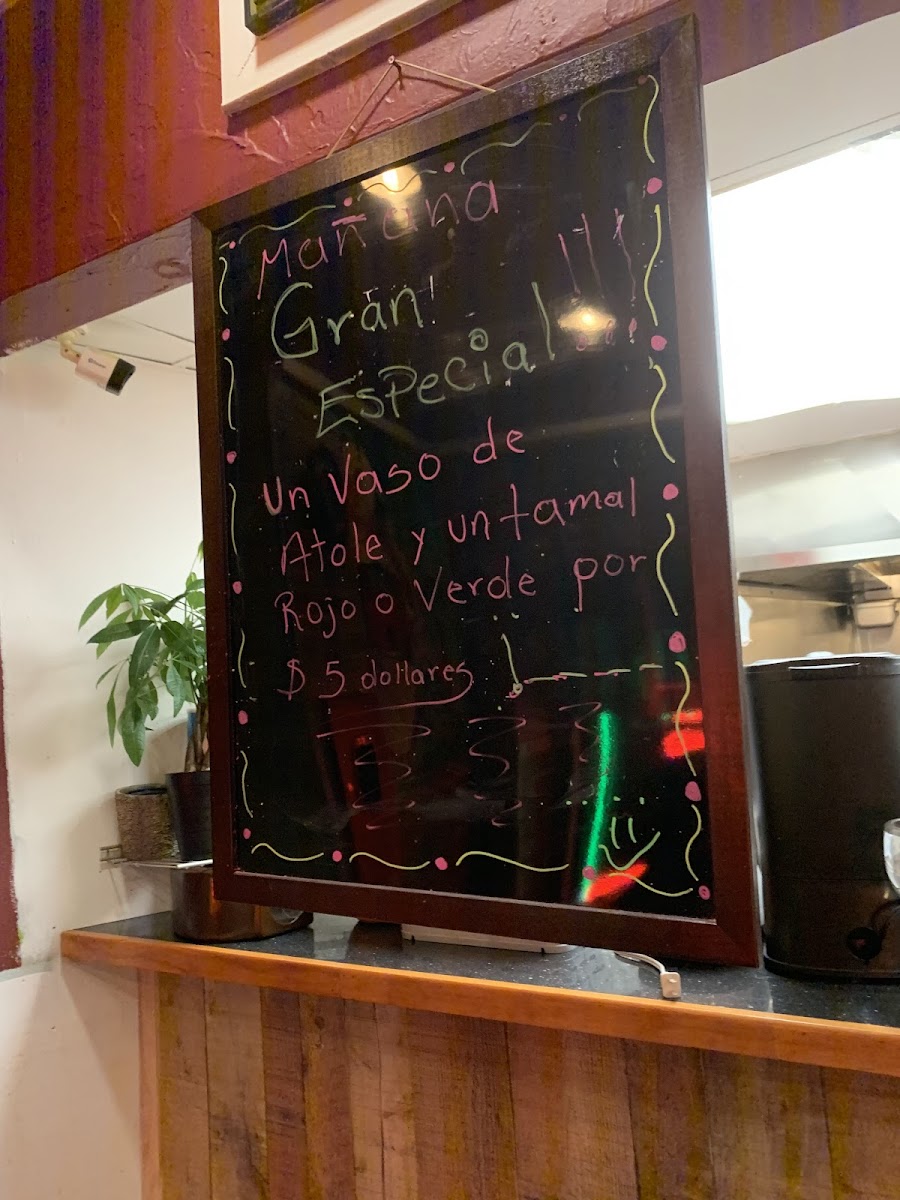 Mañana
Gran
Especial !!!
Un Vaso de
Atole y un tamal
Rojo o Verde por
$ 5 dollares